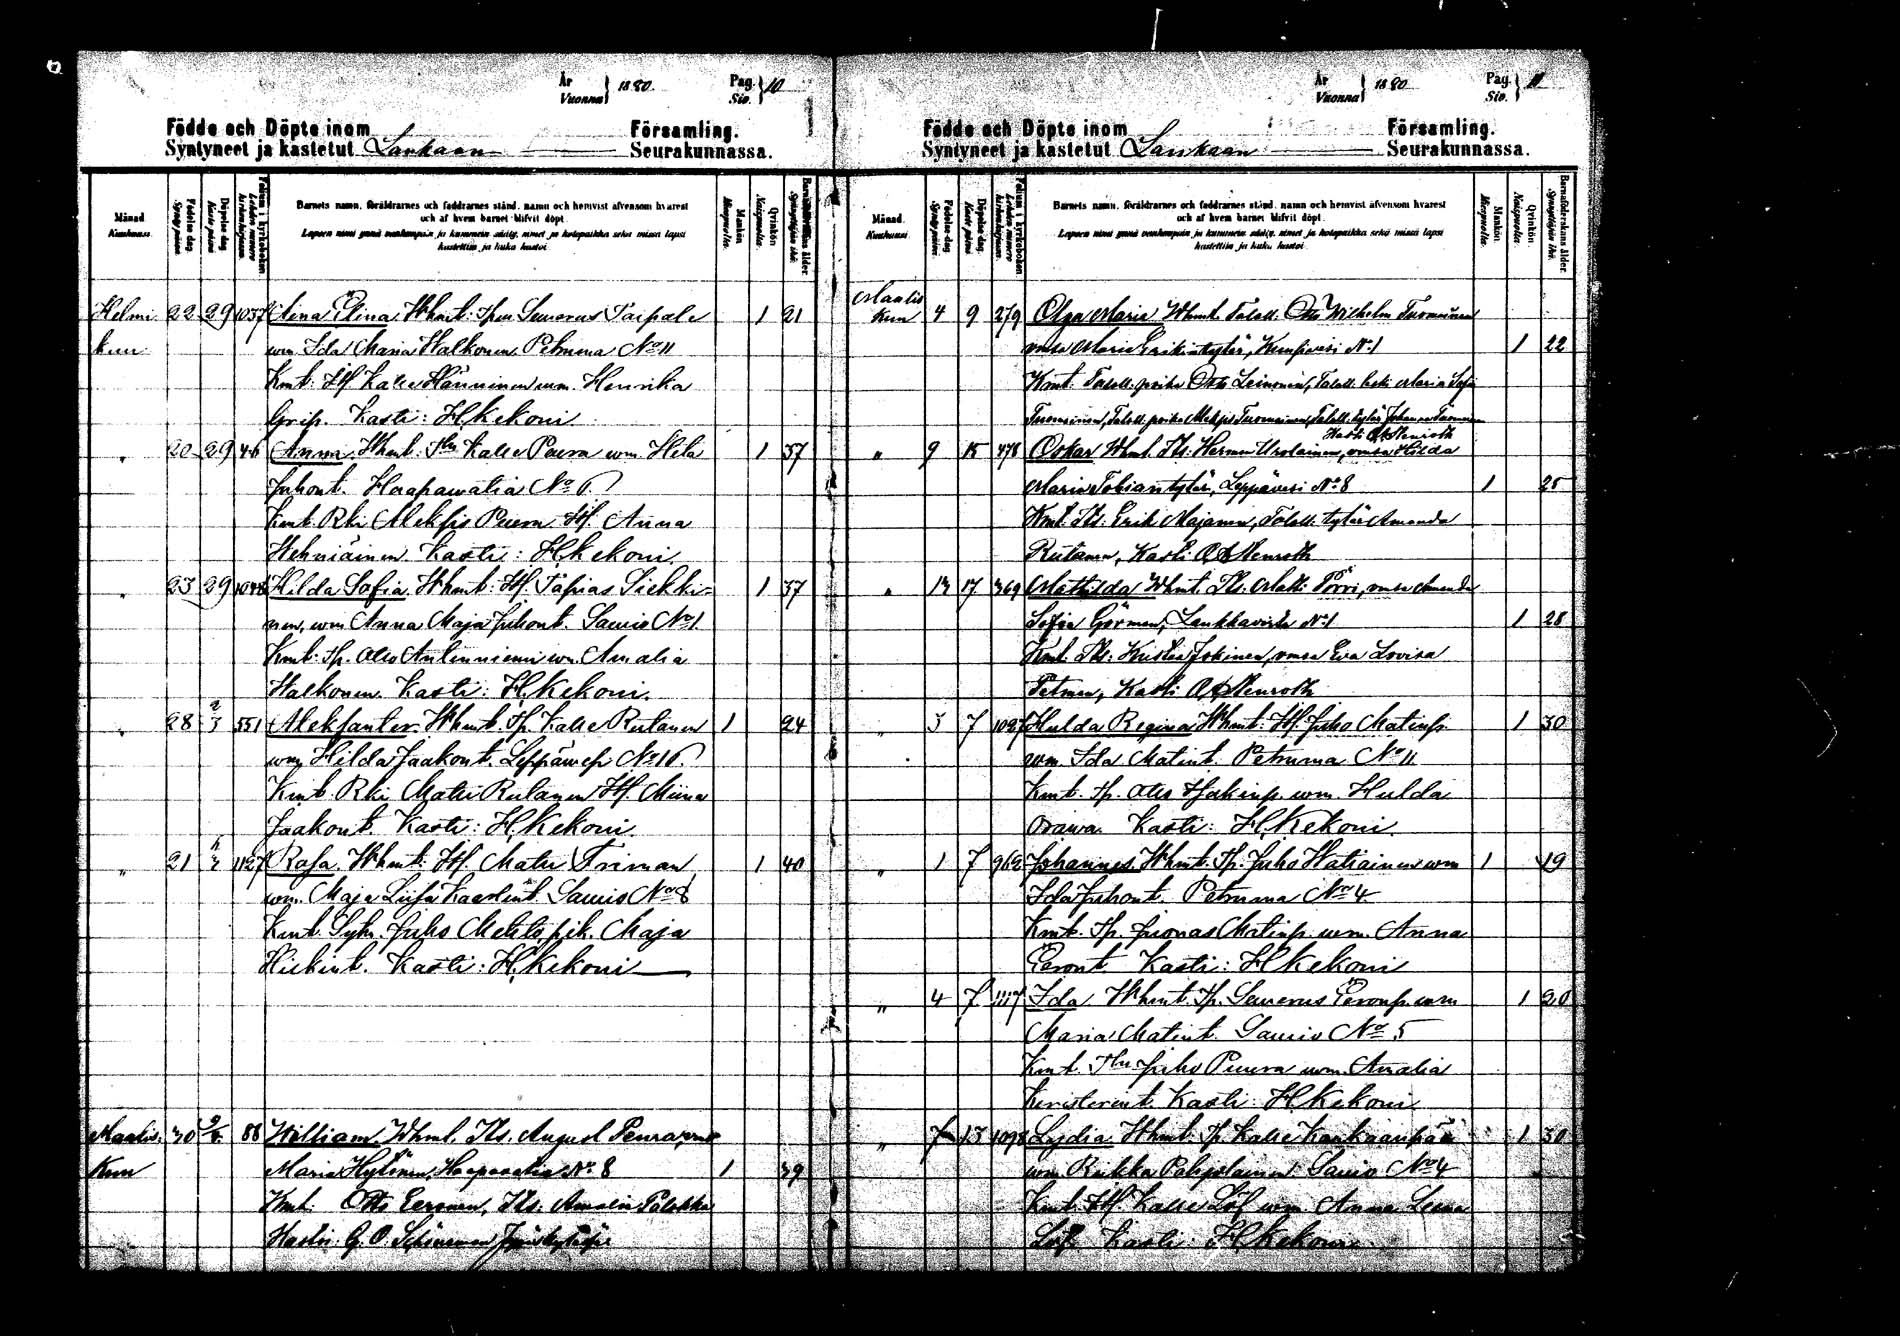 År 1880. Pag. 10
Vuonna Siv.
Födde och Döpte inom Församling.
Syntyneet ja kastetut Laukaan Seurakunnassa.
Månad Kuukausi. Födelse-dag. Syntymä-päivä. Döpelse-dag. Kaste-päivä. Folium i kyrkoboken. Lehden numero kirkonkirjassa.
Barnets namn, föräldrarnes och faddrarnes stånd, namn och hemvist äfvensom hvarest
och af hvem barnet blifvit döpt.
Lapsen nimi ynnä vanhempain ja kummein sääty, nimet ja kotopaikka sekä missä lapsi
kastettiin ja kuka kastoi.
Mankön. Miespuolia. Qvinkön. Naispuolia. Barnaföderskans ålder. Synnyttäjän ikä.
Helmi 22 29 1037 Aina Elina Whmt: Severus Taipale 1 21
kuu wm. Ida Maria Halkonen Petruma No 11
Kmt: Kalle Hänninen wm. Henrika
Grip. Kasti: H. Kekoni
" 20 29 46 Anna Whmt: Kalle Peura wm. Hela 1 37
Juhont. Haapawatia No 6
Kmt. Rki Aleksis Peura Anna
Kasti: H. Kekoni
" 23 29 1048 Hilda Sofia Whmt: Tapias Siekki= 1 37
nen, wm Anna Maja Juhont. Sawio No 1.
Kmt: Otto Antinniemi wm. Amalia
Halkonen. Kasti: H. Kekoni.
" 28 2/3 551 Aleksanter. Whmt. Kalle Rutanen 1 24
wm Hilda Jaakont. Leppäwesi No 16
Kmt. Rki Matti Rutanen Miina
Jaakont. Kasti: H. Kekoni.
" 21 1127 Rosa Whmt: Matti Friman 1 40
wm. Maja Liisa Kaarlent. Sawio No 8
Kmt. Juho Mehto, pik. Maja
Kasti: H. Kekoni
Maalis 30 88 William Whmt. Its. August Peura, wmo
Kuu Maria Hytönen, Haapavatia No 8 1 39
Kmt: Otto Eeronen, Its. Amalia Palokka
Kastoi G. O.
År 1880 Pag. 11
Vuonna Siv.
Födde och Döpte inom Församling.
Syntyneet ja kastetut Laukaan Seurakunnassa.
Månad. Kuukausi. Födelse-dag. Syntymä-päivä. Döpelse-dag. Kaste-päivä. Folium i kyrkoboken. Lehden numero kirkonkirjassa.
Barnets namn, föräldrarnes och faddrarnes stånd, namn och hemvist äfvensom hvarest
och af hvem barnet blifvit döpt.
Lapsen nimi ynnä vanhempain ja kummein sääty, nimet ja kotopaikka sekä missä lapsi
kastettiin ja kuka kastoi.
Mankön. Miespuolia. Qvinkön. Naispuolia. Barnaföderskans ålder. Synnyttäjän ikä.
Maalis
Kuu 4 9 279 Olga Maria Whmt. Talall. Otto Wilhelm Tuominen
vmsa Maria Erikintytär, Kuusvesi No 1 1 22
Kmt. Talall. poika Otto Leinonen, Talall. leski Maria Sofia
Tuominen, Talall. poika Tuominen, Talall. tytär Johanna Tuominen
Kasti O A Stenroth
" 9 15 478 Oskar Whmt. Its: Herman Urolainen, vmsa Hilda
Maria Tobiantytär, Leppävesi No 8 1 25
Kmt. Its: Erik Majanen, Talall. tytär Amanda
Rutanen, Kasti O A Stenroth
" 13 17 369 Mathilda Whmt. Its. Matti Pörri, vmsa Amanda
Sofia Görman, Laukkavirta No 1 1 28
Kmt. Its: Kustaa Jokinen, vmsa Eva Lovisa
Petman, Kasti O A Stenroth
" 3 7 1027 Hulda Regina Whmt: Juho Matinp. 1 30
wm. Ida Matint. Petruma No 11.
Kmt. Otto Hakinp. wm. Hulda
Orawa. Kasti: H. Kekoni.
" 1 7 962 Johannes Whmt. Juho Hatiainen wm 1 19
Ida Juhont. Petruma No 4
Kmt. Joonas Matinp. wm. Anna
Eeront Kasti: H Kekoni
" 4 7 1117 Ida Whmt. Severus Eeronp. wm 1 20
Maria Matint. Sawio No 5
Kmt. Juho Peura wm. Amalia
Kristerint. Kasti: H. Kekoni
" 7 13 1098 Lydia Whmt: Kalle Kankaanpää 1 30
wm. Riikka Pohjolainen Sawio No 4
Kmt. Kalle Löf wm Anna Leena
Löf. Kasti: H. Kekoni.